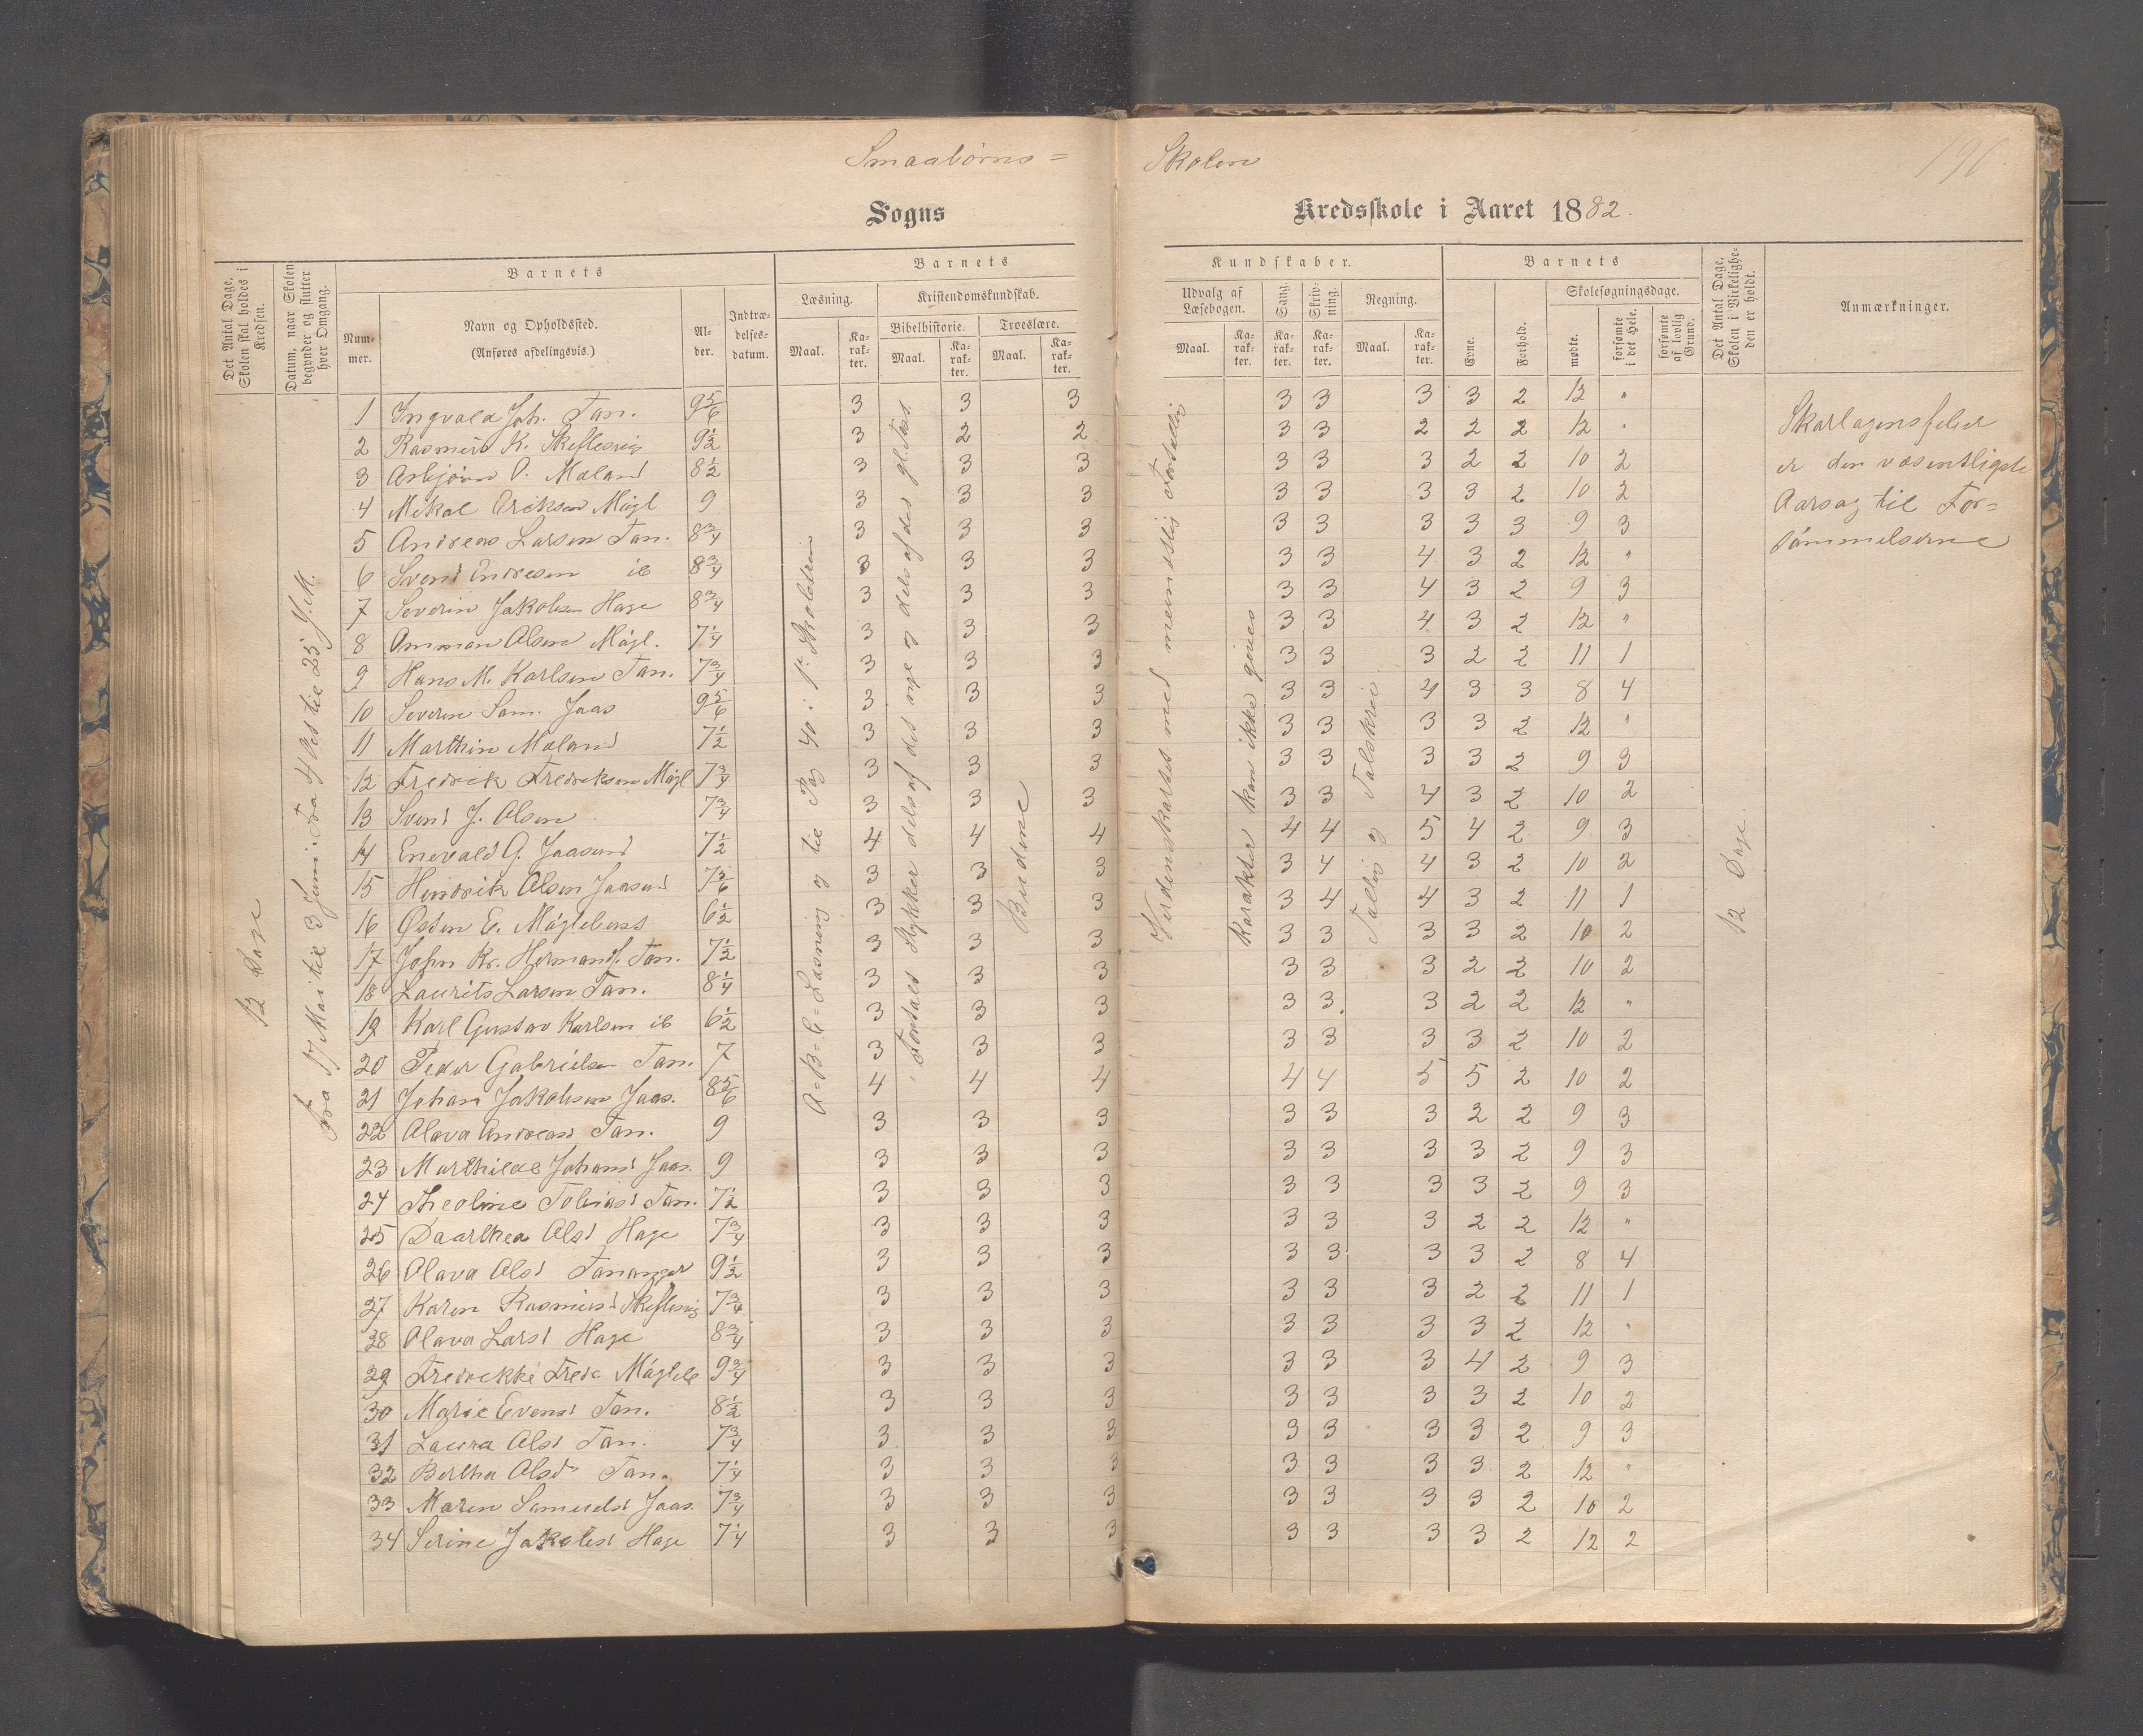 Smaabørns=
Skolen
196
Sogns
Kredsskole i Aaret 1882.
Det Antal Dage, Skolen skal holdes i Kredsen.
Datum, naar Skolen begynder og slutter hver Omgang.
Barnets
Num-mer.
Navn og Opholdssted.
(Anføres afdelingsvis.)
Al-der.
Indtræ-delses-datum.
Barnets
Læsning.
Kristendomskundskab.
Bibelhistorie.
Troeslære.
Maal.
Ka-rak-ter.
Maal.
Ka-rak-ter.
Maal.
Ka-rak-ter.
Kundskaber.
Udvalg af Læsebogen.
Sang.
Skriv-ning.
Regning.
Maal.
Ka-rak-ter.
Ka-rak-ter.
Ka-rak-ter.
Maal.
Ka-rak-ter.
Barnets
Evne.
Forhold.
Skolesøgningsdage.
mødte.
forsømte i det Hele.
forsømte af lovlig Grund.
Det Antal Dage, Skolen i Virkelighe-den er holdt.
Anmærkninger.
12 Dage
Fra 17 Mai til 3 Juni. Fra 4 Oct til 25
A-B-C-Læsning og til Pag 40 i 1ste
Fortalt Stykker dels af det nye og dels af det gl. Test.
Budene
Verdenskartet med
Karakter kan ikke gives
Tallæs og Talskriv.
12 Dage
Skarlagensfeber
er den væsentligste
Aarsag til For=
sømmelserne
1 Ingvald Joh. Tan. 9 5/6 3 3 3 3 3 3 3 2 12 "
2 Rasmus K. Skeflesvig 9 1/2 3 2 2 3 3 2 2 2 12 "
3 Asbjørn O. Meland 8 1/2 3 3 3 3 3 3 2 2 10 2
4 Mikal Eriksen Mågl 9 3 3 3 3 3 3 3 2 10 2
5 Andreas Larsen Tan. 8 3/4 3 3 3 3 3 3 3 3 9 3
6 Svend Endresen ib 8 3/4 3 3 3 3 3 4 3 2 12 "
7 Severin Jakobsen Hage 8 3/4 3 3 3 3 3 4 3 2 9 3
8 Omman Olsen Mågl. 7 1/4 3 3 3 3 3 4 3 2 12 "
9 Hans M. Karlsen Tan. 7 3/4 3 3 3 3 3 3 2 2 11 1
10 Severin Sam. Jaas 9 5/6 3 3 3 3 3 4 3 3 8 4
11 Marthin Meland 7 1/2 3 3 3 3 3 3 3 2 12 "
12 Fredrik Fredriksen Mågl 7 3/4 3 3 3 3 3 3 3 2 9 3
13 Svend J. Olsen 7 3/4 3 3 3 3 3 4 3 2 10 2
14 Enevald G. Jaasund 7 1/2 4 4 4 4 4 5 4 2 9 3
15 Hendrik Olsen Jaasund 7 5/6 3 3 3 3 4 4 3 2 10 2
16 Østen E. Mågleberst 6 1/2 3 3 3 3 4 4 3 2 11 1
17 John Kr. Hermands. Tan. 7 1/2 3 3 3 3 3 3 3 2 10 2
18 Laurits Larsen Tan. 8 1/4 3 3 3 3 3 3 2 2 10 2
19 Karl Gustav Karlsen ib 6 1/2 3 3 3 3 3 3 2 2 12 "
20 Peder Gabrielsen Tan. 7 3 3 3 3 3 3 3 2 10 2
21 Johan Jakobsen Jaas. 8 5/6 4 4 4 4 4 5 5 2 10 2
22 Olava Andreasd Tan. 9 3 3 3 3 3 3 2 2 9 3
23 Marthilde Johansd Jaas. 9 3 3 3 3 3 3 3 2 9 3
24 Theoline Tobiasd Tan. 7 1/2 3 3 3 3 3 3 3 2 9 3
25 Daarthea Olsd Hage 7 3/4 3 3 3 3 3 3 2 2 12 "
26 Olava Olsd Tananger 9 1/2 3 3 3 3 3 3 3 2 8 4
27 Karen Rasmusd Skeflesvig 7 3/4 3 3 3 3 3 3 2 2 11 1
28 Olava Larsd Hage 8 3/4 3 3 3 3 3 3 3 2 12 "
29 Fredrekke Fredr Mågleb 9 3/4 3 3 3 3 3 3 4 2 9 3
30 Marie Evensd Tan. 8 1/2 3 3 3 3 3 3 3 2 10 2
31 Laura Olsd Tan. 7 3/4 3 3 3 3 3 3 3 2 9 3
32 Bertha Olsd Tan. 7 1/4 3 3 3 3 3 3 3 2 12 "
33 Maren Samuelsd Jaas. 7 3/4 3 3 3 3 3 3 3 2 10 2
34 Serine Jakobsd Hage 7 1/4 3 3 3 3 3 3 3 2 12 2